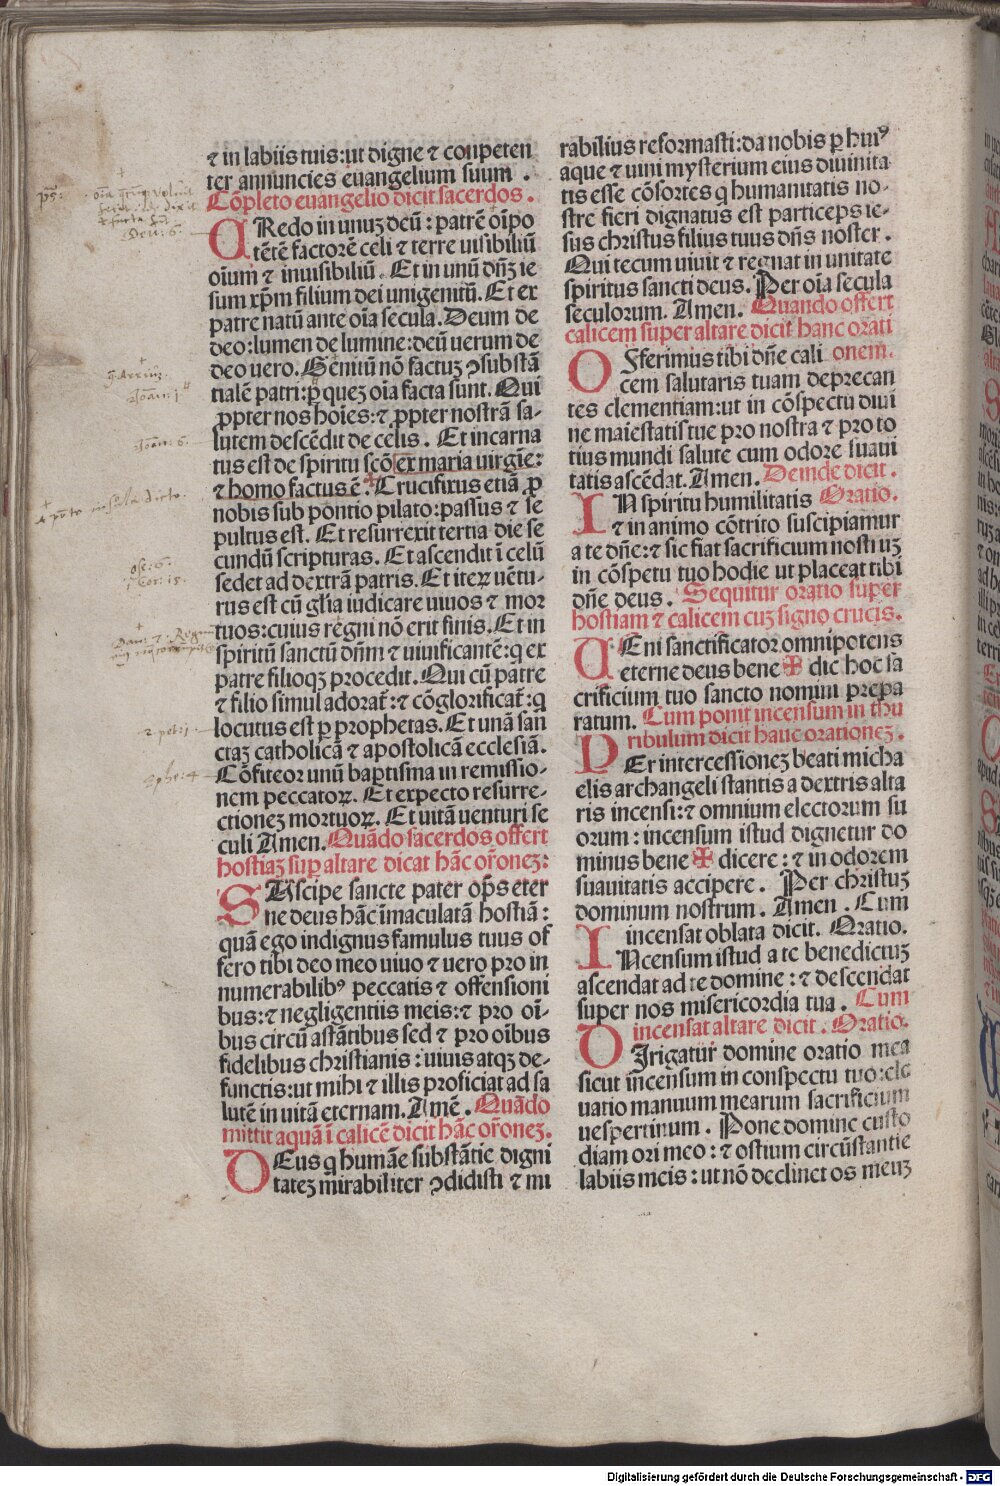 ⁊ in labiis tuis:ut digne ⁊ conpeten
ter annuncies euangelium suum .
Cõpleto euangelio dicit sacerdos .
CRedo in unuʒ deũ : patrẽ oĩpo
tẽtẽ factorẽ celi ⁊ terre uisibiliũ
oĩum ⁊ inuisibiliũ . Et in unũ dñʒ ie
sum xp̃m filium dei unigenitũ. Et ex
patre natũ ante oĩa secula. Deum de
deo:lumen de lumine:deũ uerum de
deo uero. Genitũ nõ factuʒ ꝯsubstã
tialẽ patri:ꝑ queʒ oĩa facta sunt. Qui
ꝓpter nos hoĩes:⁊ ꝓpter nostrã sa-
lutem descẽdit de celis . Et incarna
tus est de spiritu scõ ex maria uirgĩe:
⁊ homo factus ẽ . Crucifixus etiã ꝓ
nobis sub pontio pilato:passus ⁊ se
pultus est. Et resurrexit tertia die se
cundũ scripturas. Et ascendit ĩ celũ
sedet ad dextrã patris. Et iteꝝ uẽtu-
rus est cũ glĩa iudicare uiuos ⁊ mor
tuos:cuius regni nõ erit finis. Et in
spiritũ sanctũ dñm ⁊ uiuificantẽ:q ex
patre filioqʒ procedit. Qui cũ patre
⁊ filio simul adorat̃:⁊ cõglorificat̃:q
locutus est ꝑ prophetas. Et unã san
ctaʒ catholicã ⁊ apostolicã ecclesiã.
Cõfiteor unũ baptisma in remissio-
nem peccatoꝝ. Et expecto resurre-
ctioneʒ mortuoꝝ. Et uitã uenturi se
culi Amen. Quãdo sacerdos offert
hostiaʒ suꝑ altare dicat hãc or̃oneʒ:
SUscipe sancte pater op̃s eter
ne deus hãc ĩmaculatã hostiã :
quã ego indignus famulus tuus of
fero tibi deo meo uiuo ⁊ uero pro in
numerabilibꝰ peccatis ⁊ offensioni
bus:⁊ negligentiis meis:⁊ pro oĩ-
bus circũ astãtibus sed ⁊ pro oĩbus
fidelibus christianis : uiuis atqʒ de-
functis:ut mihi ⁊ illis proficiat ad sa
lutẽ in uitã eternam. Amẽ . Quãdo
mittit aquã ĩ calicẽ dicit hãc or̃oneʒ.
DEus q humãe substãtie digni
tateʒ mirabiliter ꝯdidisti ⁊ mi
rabilius reformasti:da nobis ꝑ huiꝰ
aque ⁊ uini mysterium eius diuinita
tis esse cõsortes q humanitatis no-
stre fieri dignatus est particeps ie-
sus christus filius tuus dñs noster .
Qui tecum uiuit ⁊ regnat in unitate
spiritus sancti deus. Per oĩa secula
seculorum. Amen. Quando offert
calicem super altare dicit hanc orati
OFferimus tibi dñe cali onem.
cem salutaris tuam deprecan
tes clementiam:ut in cõspectu diui
ne maiestatis tue pro nostra ⁊ pro to
tius mundi salute cum odore suaui
tatis ascẽdat. Amen. Deinde dicit .
IN spiritu humilitatis Oratio.
⁊ in animo cõtrito suscipiamur
a te dñe:⁊ sic fiat sacrificium nostruʒ
in cõspetu tuo hodie ut placeat tibi
dñe deus . Sequitur oratio super
hostiam ⁊ calicem cuʒ signo crucis.
UEni sanctificator omnipotens
eterne deus bene ✠ dic hoc sa
crificium tuo sancto nomini prepa
ratum. Cum ponit incensum in thu
ribulum dicit hanc orationeʒ .
PEr intercessioneʒ beati micha
elis archangeli stantis a dextris alta
ris incensi:⁊ omnium electorum su
orum : incensum istud dignetur do
minus bene ✠ dicere : ⁊ in odorem
suauitatis accipere . Per christuʒ
dominum nostrum . Amen . Cum
incensat oblata dicit. Oratio.
INcensum istud a te benedictuʒ
ascendat ad te domine : ⁊ descendat
super nos misericordia tua . Cum
incensat altare dicit . Oratio.
DIrigatur domine oratio mea
sicut incensum in conspectu tuo:ele
uatio manuum mearum sacrificium
uespertinum . Pone domine custo
diam ori meo : ⁊ ostium circũstantie
labiis meis : ut nõ declinet os meuʒ
Digitalisierung gefördert durch die Deutsche Forschungsgemeinschaft - DFG